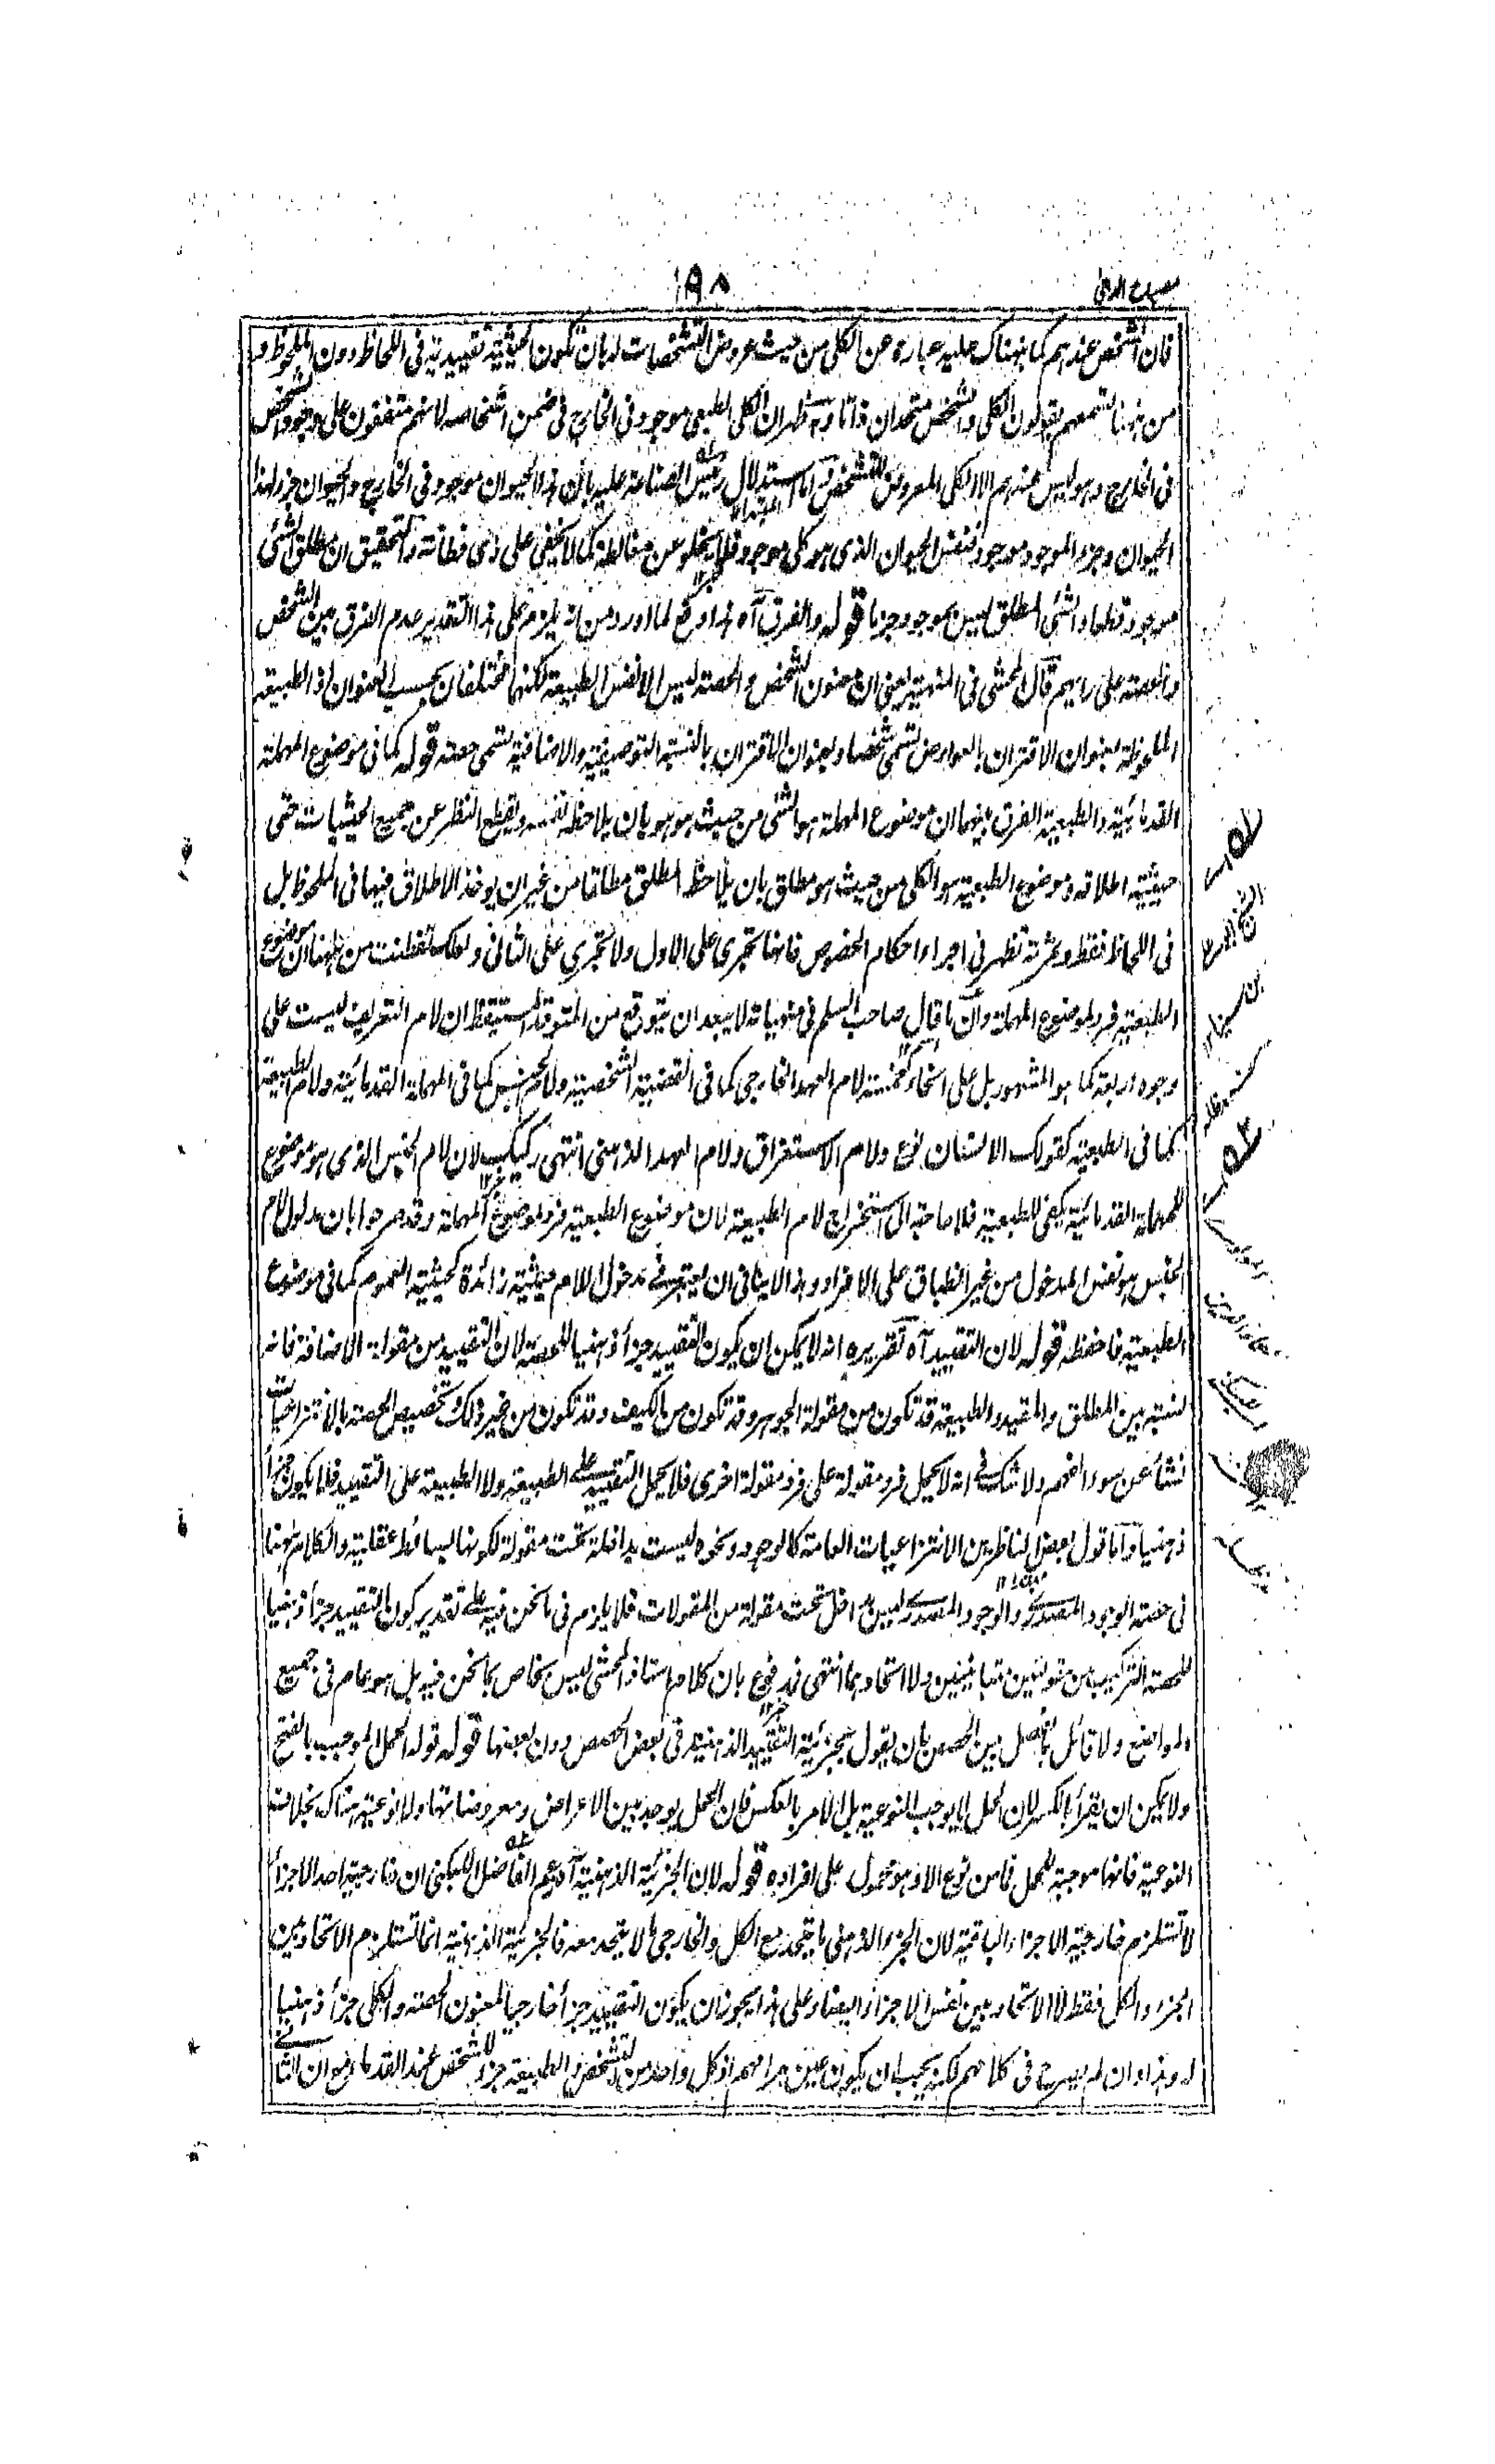 مصباح الدجى
١٩٨
فان الشخص عندهم كما نبهناك عليه عبارة عن الكلى من حيث عروض التشخصات له بان تكون الحيثية تقييدية فى اللحاظ دون الملحوظ و
من ههنا تسمعهم يقولون الكلى والشخص متحدان ذاتا وبه ظهر ان الكلى الطبعى موجود فى الخارج فى ضمن اشخاصه لانهم متفقون على وجود الشخص
فى الخارج وهو ليس عندهم الا الكلى المعروض للتشخص واما استدلال رئيس الصناعة عليه بان هذا الحيوان موجود فى الخارج والحيوان جزء لهذا
الحيوان وجزء الموجود موجود فنفس الحيوان الذى هو كلى موجود فلا يخلو عن مغالطة كما لا يخفى على ذى فطانة والتحقيق ان مطلق الشئ
موجود قطعا والشئ المطلق ليس بموجود جزما قوله والفرق آه هذا دفع لما اورد من انه يلزم على هذا التقدير عدم الفرق بين الشخص
والحصة على رأيهم قال المحشى فى المنهية يعنى ان معنون الشخص والحصة ليس الا نفس الطبيعة لكنهما مختلفان بحسب العنوان اذ الطبيعة
الملحوظة بعنوان الاقتران بالعوارض تسمى شخصا وبعنوان الاقتران بالنسبة التوصيفية والاضافية تسمى حصة قوله كما فى موضوع المهملة
القدمائية والطبعية الفرق بينهما ان موضوع المهملة هو الشئ من حيث هو هو بان يلاحظ نفسه ويقطع النظر عن جميع الحيثيات حتى
حيثية اطلاقه وموضوع الطبعية هو الكلى من حيث هو مطلق بان يلاحظ المطلق مطلقا من غير ان يوخذ الاطلاق فيها فى الملحوظ بل
فى اللحاظ فقط وثمرته تظهر فى اجراء احكام الخصوص فانها تجرى على الاول ولا تجرى على الثانى ولعلك تفطنت من ههنا ان موضوع
الطبعية فرد لموضوع المهملة وان ما قال صاحب السلم فى منهياته لا يبعد ان يتوقع من المتوقد المستيقظ ان لام التعريف ليست على
وجوه اربعة كما هو المشهور بل على انحاء خمسة لام العهد الخارجى كما فى القضية الشخصية ولام الجنس كما فى المهملة القدمائية ولام الطبيعة
كما فى الطبعية كقولك الانسان نوع ولام الاستغراق ولام العهد الذهنى انتهى ركيك لان لام الجنس الذى هو موضوع
للمهملة القدمائية يكفى للطبعية فلا حاجة الى استخراج لام الطبيعة لان موضوع الطبعية فرد لموضوع المهملة وقد صرحوا بان مدلول لام
الجنس هو نفس المدخول من غير انطباق على الافراد وهذا لا ينافى ان يعتبر فى مدخول اللام حيثية زائدة كحيثية العموم كما فى موضوع
الطبعية فاحفظه قوله لان التقييد آه تقريره انه لا يمكن ان يكون التقييد جزأ ذهنيا للحصة لان التقييد من مقولة الاضافة فانه
نسبة بين المطلق والمقيد والطبيعة قد تكون من مقولة الجوهر وقد تكون من الكيف وقد تكون من غير ذلك وتخصيص الحصة بالانتزاعيات
نشأ عن سوء الفهم ولا شك فى انه لا يحمل فرد مقولة على فرد مقولة اخرى فلا يحمل التقييد على الطبيعة ولا الطبيعة على التقييد فلا يكون جزأ
ذهنيا واما قول بعض الناظرين الانتزاعيات العامة كالوجود ونحوه ليست بداخلة تحت مقولة لكونها بسائط عقلية والكلام ههنا
فى حصة الوجود المصدرى والوجود المصدرى ليس بداخل تحت مقولة من المقولات فلا يلزم فى ما نحن فيه على تقدير كون التقييد جزأ ذهنيا
للحصة التركيب من مقولتين متباينتين ولا اتحادهما انتهى فمدفوع بان كلام استاذ المحشى ليس بخاص بما نحن فيه بل هو عام فى جميع
المواضع ولا قائل بالفصل بين الحصص بان يقول بجزئية التقييد الذهنية فى بعض الحصص دون بعضها قوله قوله الحمل الموجب بالفتح
ولا يمكن ان يقرأ بالكسر لان الحمل لا يوجب النوعية بل الامر بالعكس فان الحمل يوجد بين الاعراض ومعروضاتها ولا نوعية هناك بخلاف
النوعية فانها موجبة للحمل فما من نوع الا وهو محمول على افراده قوله لان الجزئية الذهنية آه زعم الفاضل اللبكنى ان خارجية احد الاجزاء
لا تستلزم خارجية الاجزاء الباقية لان الجزء الذهنى ما يتحد مع الكل والخارجى ما لا يتحد معه فالجزئية الذهنية انما تستلزم الاتحاد بين
الجزء والكل فقط لا الاتحاد بين نفس الاجزاء ايضا وعلى هذا يجوز ان يكون التقييد جزأ خارجيا لمعنون الحصة والكلى جزأ ذهنيا
له وهذا وان لم يصرح فى كلامهم لكنه يجب ان يكون عين مرامهم اذ كل واحد من التشخص والطبيعة جزء للشخص عند القدماء مع ان الثانى
الشيخ الرئيس
بن سينا